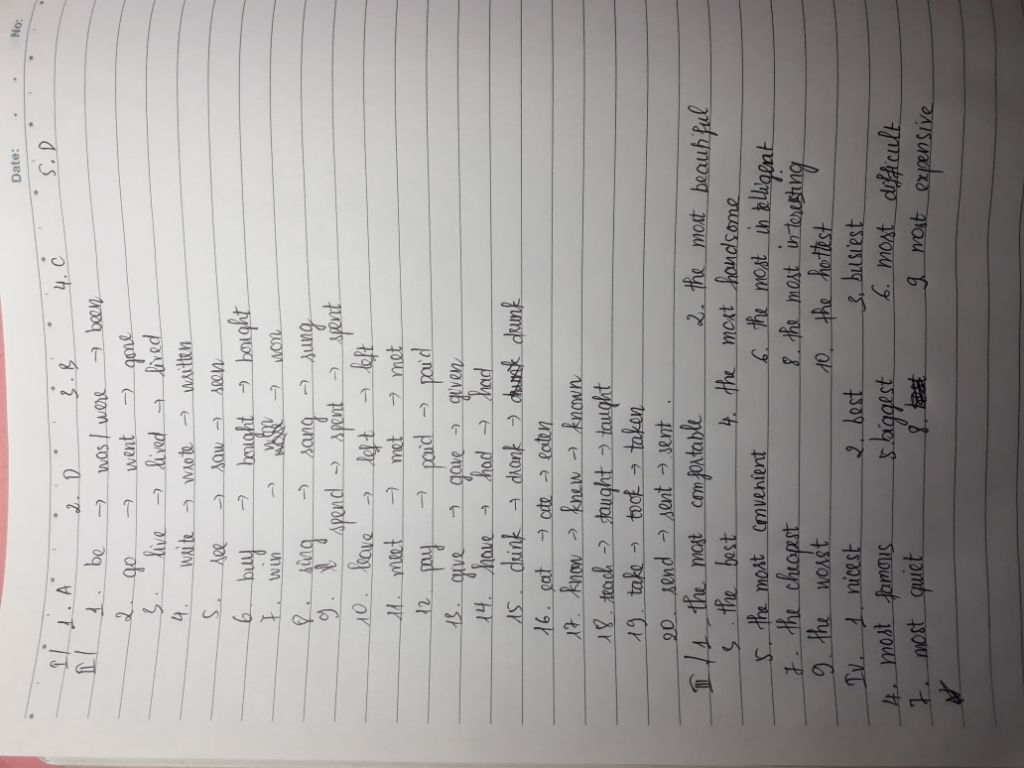 Date: No:
I/ 1. A 2. D 3. B 4. C 5. D
II/ 1. be → was/were → been
2. go → went → gone
3. live → lived → lived
4. write → wrote → written
5. see → saw → seen
6. buy → bought → bought
7. win → → won
8. sing → sang → sung
9. spend → spent → spent
10. leave → left → left
11. meet → met → met
12. pay → paid → paid
13. give → gave → given
14. have → had → had
15. drink → drank → drunk
16. eat → ate → eaten
17. know → knew → known
18. teach → taught → taught
19. take → took → taken
20. send → sent → sent.
III/ 1. the most comfortable 2. the most beautiful
3. the best 4. the most handsome
5. the most convenient 6. the most intelligent
7. the cheapest 8. the most interesting
9. the worst 10. the hottest
IV. 1. nicest 2. best 3. busiest
4. most famous 5. biggest 6. most difficult
7. most quiet 8. 9 most expensive